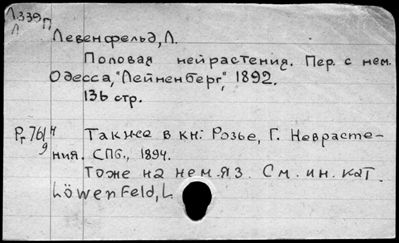 Л339 П
Л
Левенфельд, Л.
Половая нейрастения. Пер. с нем.
Одесса, "Лейненберг", 1892.
136 стр.
Рг 761 н
9
Также в кн: Розье, Г. Неврасте-
ния. СПб., 1894.
Тоже на нем.яз. См. ин. кат.
Löwenfeld, L